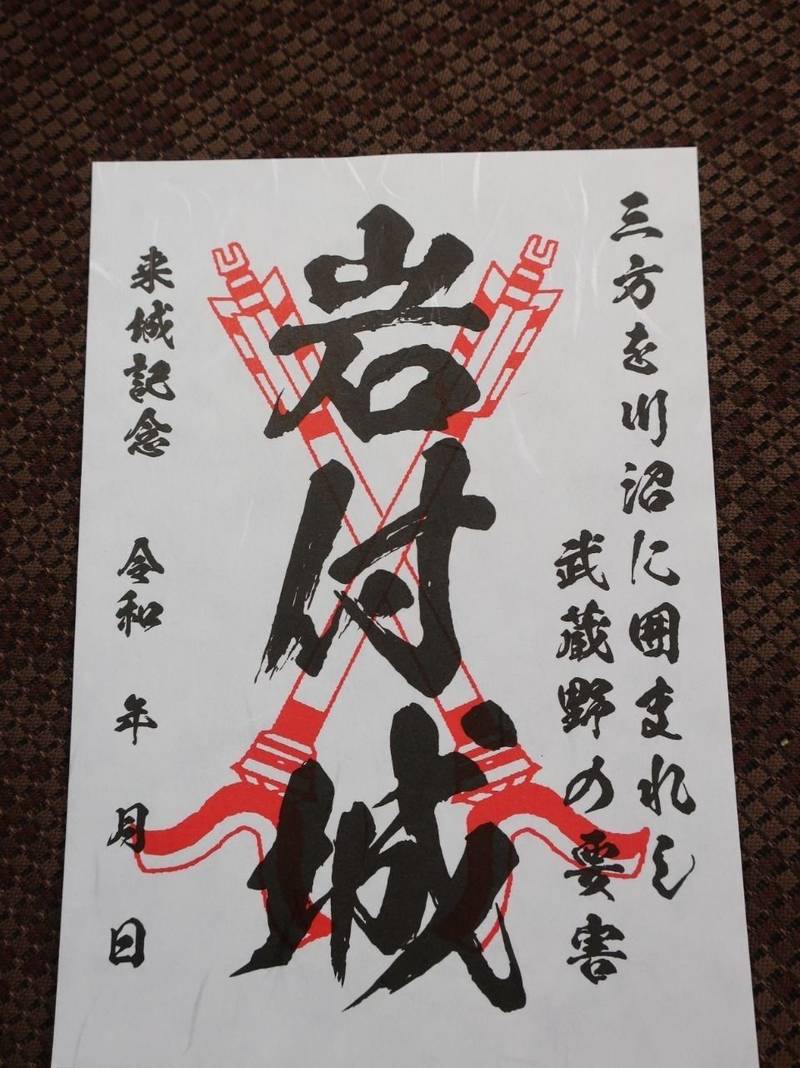 三方を川沼に囲まれし
武蔵野の要害
岩付城
来城記念 令和 年 月 日